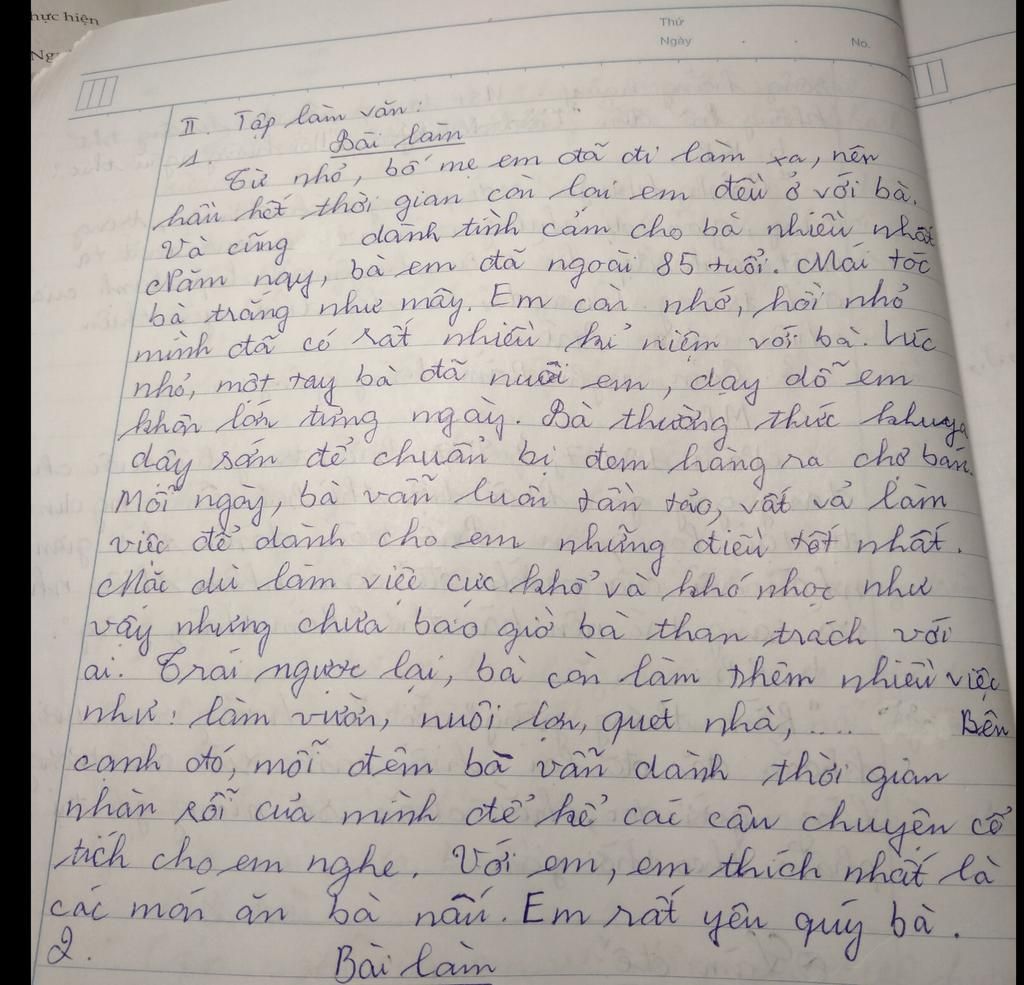 hực hiện
Thứ
Ngày
No.
II. Tập làm văn:
1. Bài làm
Từ nhỏ, bố mẹ em đã đi làm xa, nên
hầu hết thời gian còn lại em đều ở với bà.
Và cũng dành tình cảm cho bà nhiều nhất
Năm nay, bà em đã ngoài 85 tuổi. Mái tóc
bà trắng như mây. Em còn nhớ, hồi nhỏ
mình đã có rất nhiều kỉ niệm với bà. Lúc
nhỏ, một tay bà đã nuôi em, dạy dỗ em
khôn lớn từng ngày. Bà thường thức khuya
dậy sớn để chuẩn bị đem hàng ra chợ bán.
Mỗi ngày, bà vẫn luôn tần tảo, vất vả làm
việc để dành cho em những điều tốt nhất.
Mặc dù làm việc cực khổ và khó nhọc như
vậy nhưng chưa bao giờ bà than trách với
ai. Trái ngược lại, bà còn làm thêm nhiều việc
như: làm vườn, nuôi lợn, quét nhà, .... Bên
cạnh đó, mỗi đêm bà vẫn dành thời gian
nhàn rỗi của mình để kể các câu chuyện cổ
tích cho em nghe. Với em, em thích nhất là
các món ăn bà nấu. Em rất yêu quý bà.
2. Bài làm